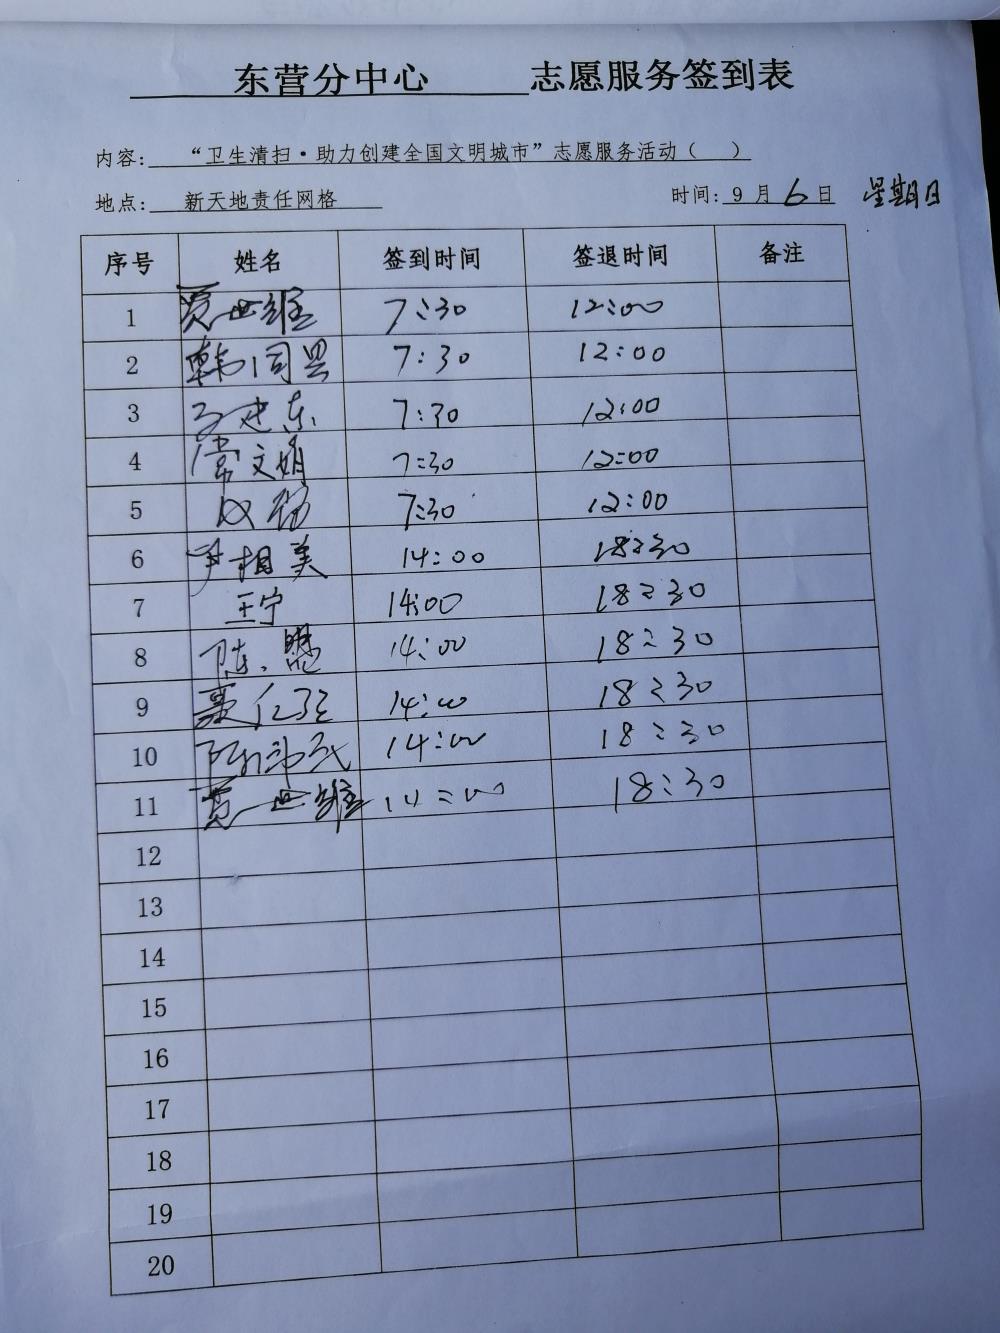 东营分中心 志愿服务签到表
内容： “卫生清扫·助力创建全国文明城市”志愿服务活动（ ）
地点： 新天地责任网格 时间：9月6日 星期日
序号 姓名 签到时间 签退时间 备注
1 贾世维 7:30 12:00
2 韩同昙 7:30 12:00
3 7:30 12:00
4 常文娟 7:30 12:00
5 7:30 12:00
6 尹相美 14:00 18:30
7 王宁 14:00 18:30
8 14:00 18:30
9 聂仁强 14:00 18:30
10 14:00 18:30
11 贾世维 14:00 18:30
12
13
14
15
16
17
18
19
20